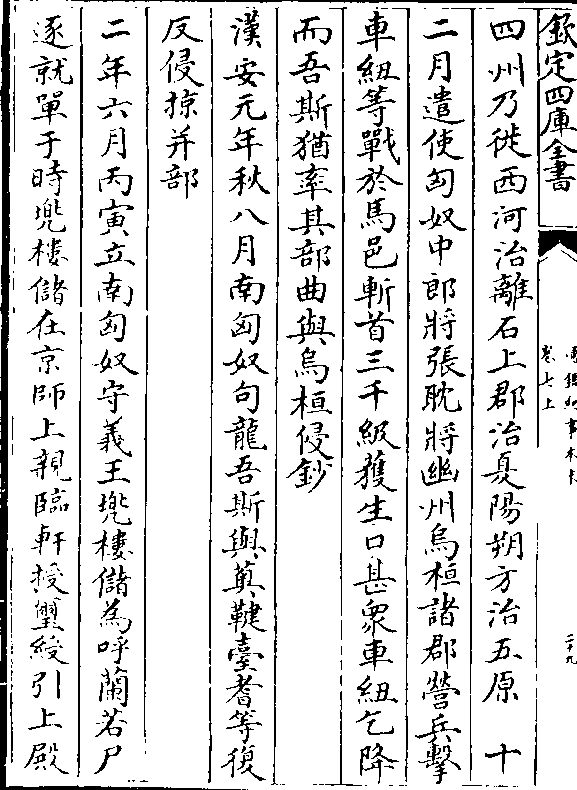 欽定四庫全書
通鑑紀事本末
卷七上
二十九
四州乃徙西河治離石上郡治夏陽朔方治五原　十
二月遣使匈奴中郎將張耽將幽州烏桓諸郡營兵擊
車紐等戰於馬邑斬首三千級獲生口甚衆車紐乞降
而吾斯猶率其部曲與烏桓侵鈔
漢安元年秋八月南匈奴句龍吾斯與薁鞬臺耆等復
反侵掠并部
二年六月丙寅立南匈奴守義王兠樓儲為呼蘭若尸
逐就單于時兠樓儲在京師上親臨軒授璽綬引上殿